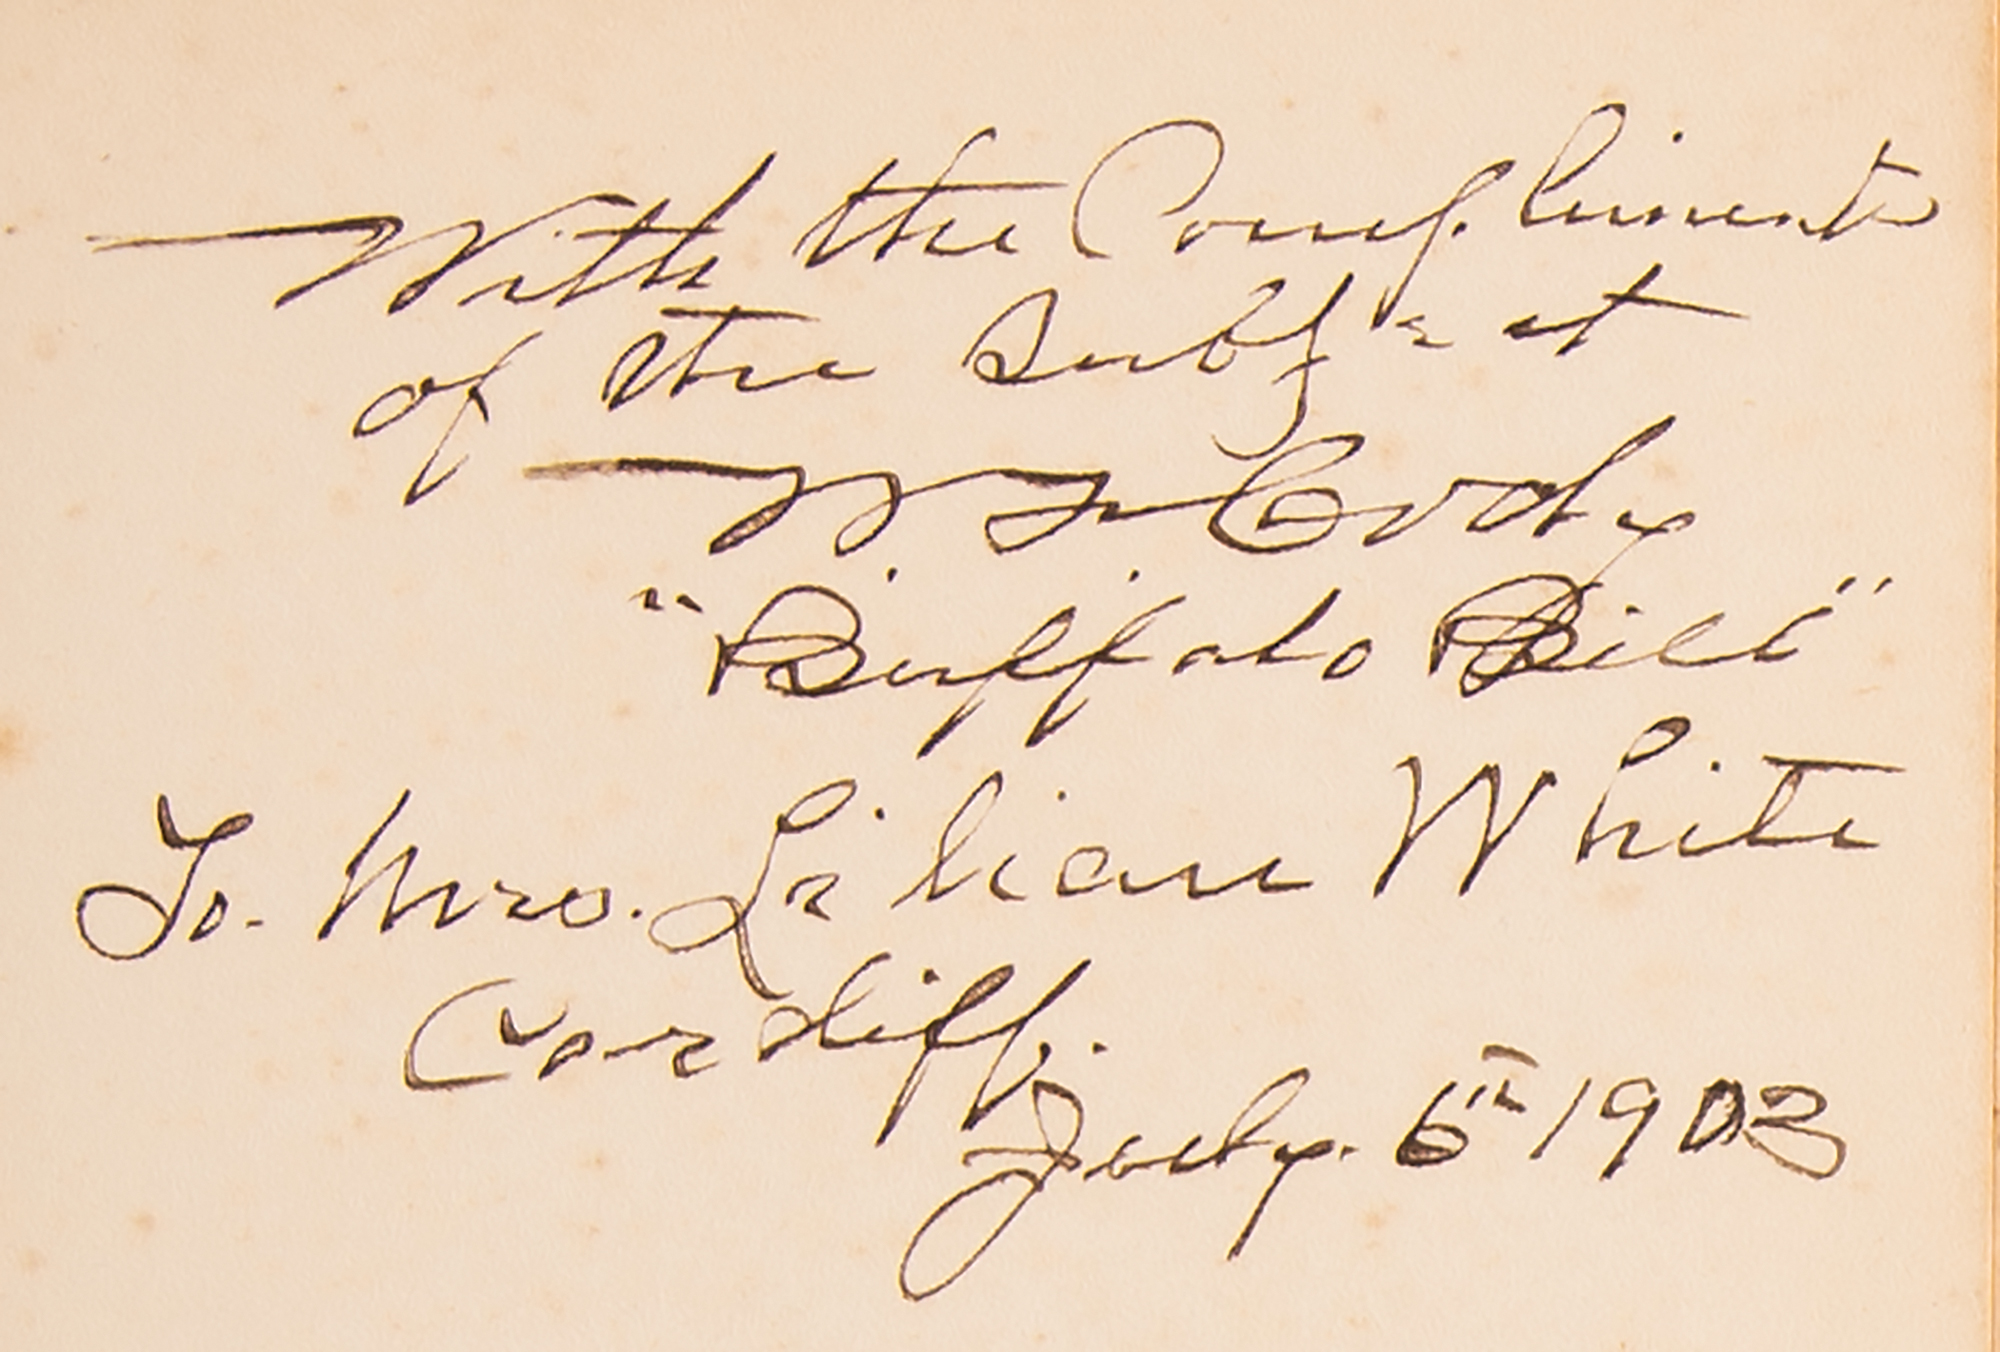 With the Compliments
of the Subject
W F Cody
"Buffalo Bill"
To. Mrs. Lilian White
Cardiff.
July. 6th 1903